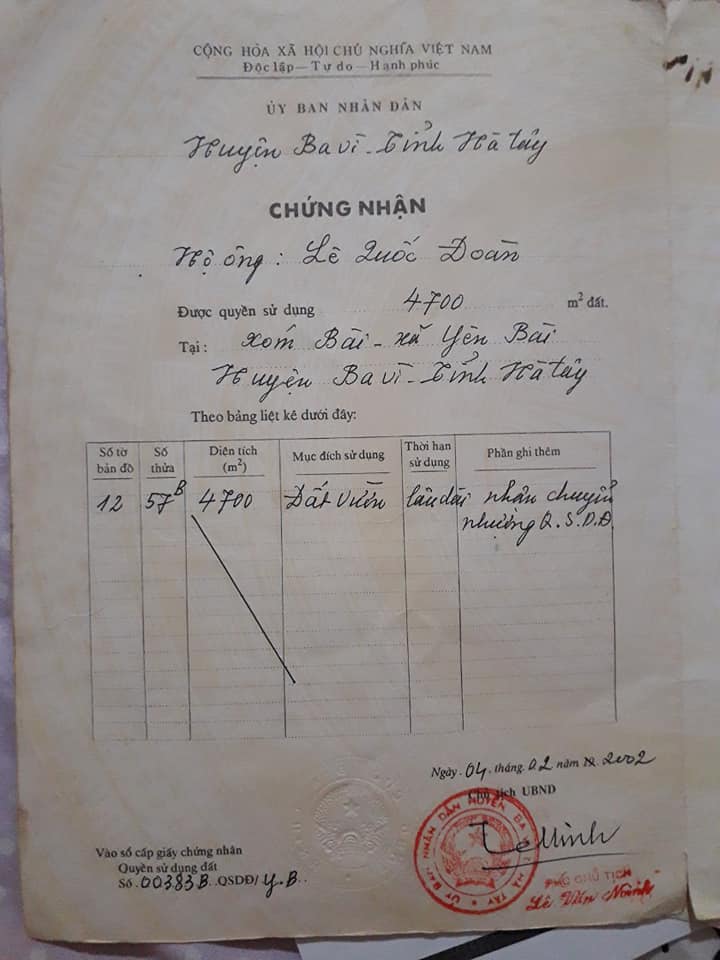 CỘNG HÒA XÃ HỘI CHỦ NGHĨA VIỆT NAM
Độc lập — Tự do — Hạnh phúc
ỦY BAN NHÂN DÂN
Huyện Ba vì - Tỉnh Hà tây
CHỨNG NHẬN
Hộ ông: Lê Quốc Đoàn
Được quyền sử dụng 4700 m² đất.
Tại: xóm Bài - xã Yên Bài
Huyện Ba vì - Tỉnh Hà tây
Theo bảng liệt kê dưới đây:
Số tờ bản đồ Số thửa Diện tích (m²) Mục đích sử dụng Thời hạn sử dụng Phần ghi thêm
12 57B 4700 Đất vườn lâu dài nhận chuyển
nhượng Q.S.D.Đ
Ngày 04 tháng 02 năm 2002
Chủ tịch UBND
ỦY BAN NHÂN DÂN HUYỆN BA VÌ HÀ TÂY
PHÓ CHỦ TỊCH
Lê Văn
Vào sổ cấp giấy chứng nhân
Quyền sử dụng đất
Số 00383B QSDĐ/ Y.B